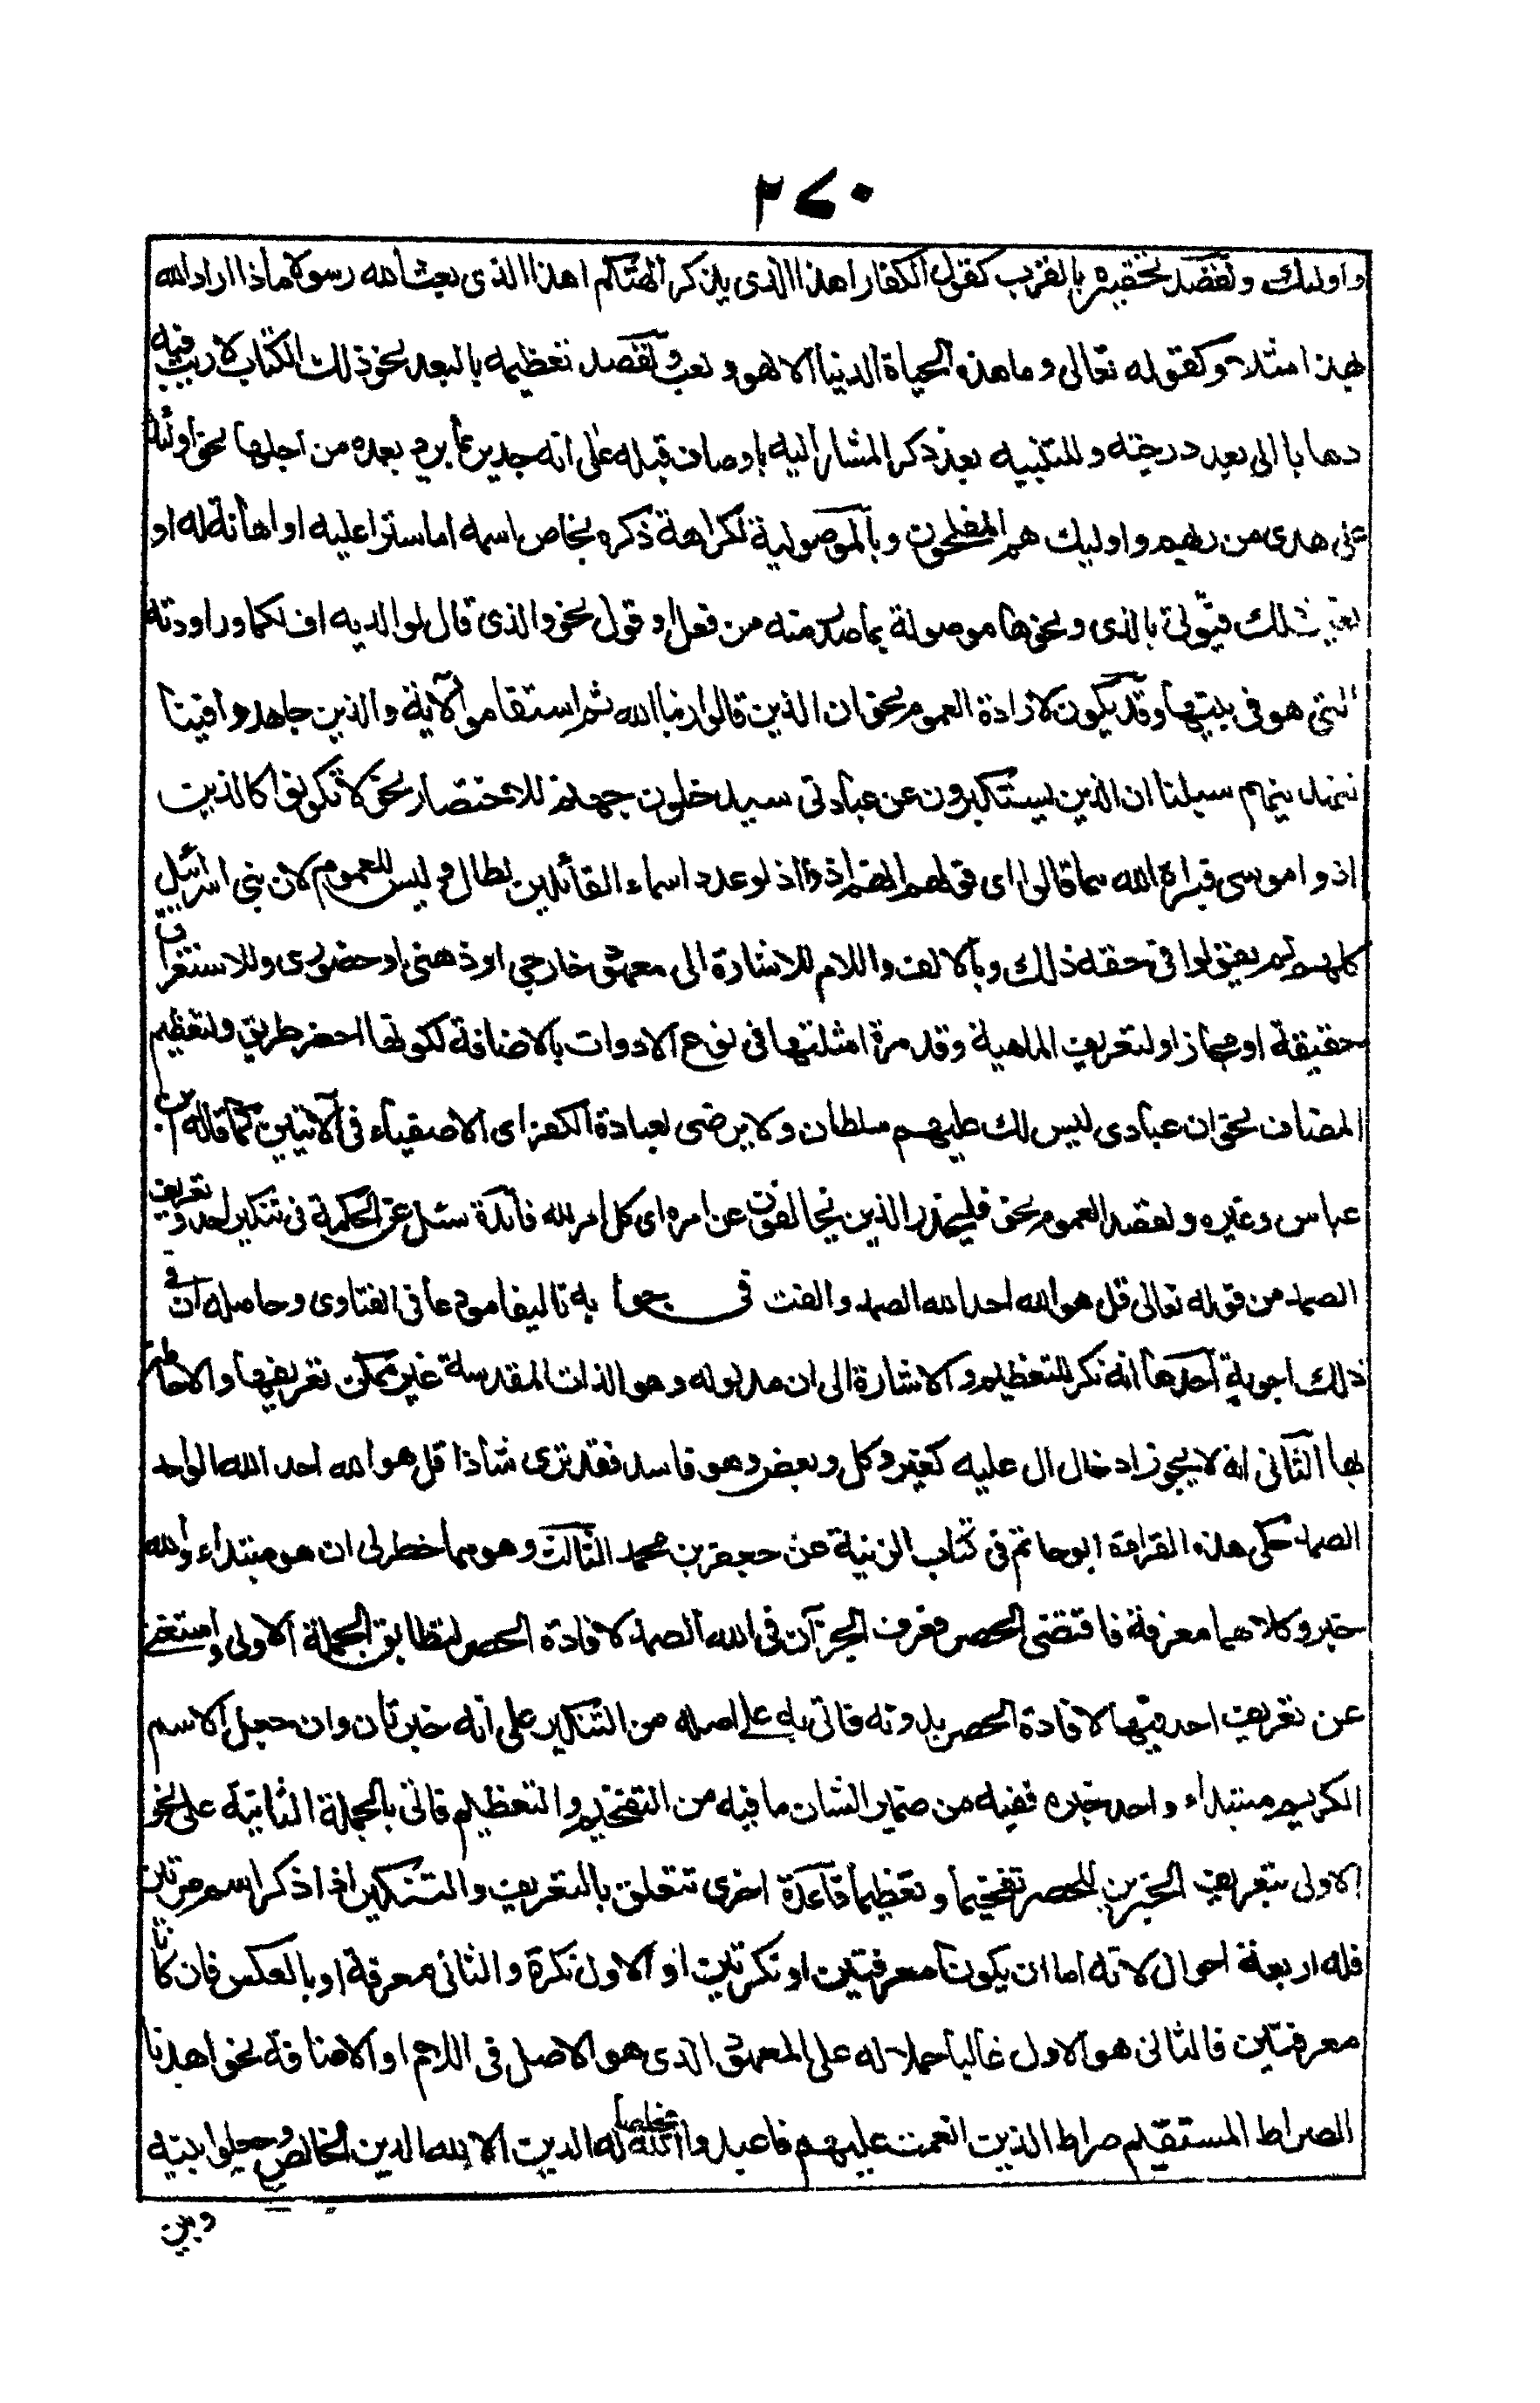 ٢٧٠
واوليك ولقصد تحقيره بالقرب كقول الكفار اهذا الذى يذكر الهتكم اهذا الذى بعث الله رسولا ماذا اراد الله
بهذا مثلا وكقوله تعالى وما هذه الحياة الدنيا الا لهو ولعب ولقصد تعظيمه بالبعد نحو ذلك الكتاب لا ريب فيه
دهابا الى بعد درجته وللتنبيه بعد ذكر المشار اليه باوصاف قبله على انه جدير بما يرد بعده من اجلها نحو اولئك
على هدى من ربهم واوليك هم المفلحون وبالموصولية لكراهة ذكره بخاص اسمه اما سترا عليه او اهانة له او
لغير ذلك فيؤتى بالذى ونحوها موصولة بما صدر منه من فعل او قول نحو والذى قال لوالديه اف لكما وراودته
التى هو فى بيتها وقد يكون لارادة العموم نحو ان الذين قالوا ربنا الله ثم استقاموا الآية والذين جاهدوا فينا
لنهدينهم سبلنا ان الذين يستكبرون عن عبادتى سيدخلون جهنم للاختصار نحو لا تكونوا كالذين
اذوا موسى فبراه الله مما قالوا اى قولهم انه اذرا اذ لو عدد اسماء القائلين لطال وليس للعموم لان بنى اسرائيل
كلهم لم يقولوا فى حقه ذلك وبالالف واللام للاشارة الى معهود خارجي او ذهنى او حضورى وللاستغراق
حقيقة او مجاز او لتعريف الماهية وقد مرة امثلتها فى نوع الادوات بالاضافة لكونها احضر طريق ولتعظيم
المضاف نحو ان عبادى ليس لك عليهم سلطان ولا يرضى لعبادة الكفر اى الاصفياء فى الآيتين كما قاله ابن
عباس وغيره ولقصد العموم نحو فليحذر الذين يخالفون عن امره اى كل امر لله فائدة سئل عن الحكمة فى تنكير احد وتعريف
الصمد من قوله تعالى قل هو الله احد الله الصمد والفت فى جوابه تاليفا مودعا فى الفتاوى وحاصله ان فى
ذلك اجوبة احدها انه نكر للتعظيم والاشارة الى ان مدلوله وهو الذات المقدسة غير ممكن تعريفها والاحاطة
بها الثانى انه لا يجوز ادخال ال عليه كغير وكل وبعض وهو فاسد فقد قرى شاذا قل هو الله احد الله الواحد
الصمد حكى هذه القراءة ابو حاتم فى كتاب الزينة عن جعفر بن محمد الثالث وهو مما خطر لى ان هو مبتداء والله
خبر وكلاهما معرفة فاقتضى الحصر فعرف الجزآن فى الله الصمد لافادة الحصر لتطابق الجملة الاولى واستغنى
عن تعريف احد فيها لافادة الحصر بدونه فاتى به على اصله من التنكير على انه خبر ثان وان جعل الاسم
الكريم مبتداء واحد خبره ففيه من ضمير الشان ما فيه من التفخيم والتعظيم فاتى بالجملة الثانية على نحو
الاولى بتعريف الجزين للحصر تفخيما وتعظيما قاعدة اخرى تتعلق بالتعريف والتنكير اذا ذكر اسم مرتين
فله اربعة احوال لانه اما ان يكونا معرفتين او نكرتين او الاول نكرة والثانى معرفة او بالعكس فان كانا
معرفتين فالثانى هو الاول غالبا حملا له على المعهود الذى هو الاصل فى اللام او الاضافة نحو اهدنا
الصراط المستقيم صراط الذين انعمت عليهم فاعبد والله مخلصا له الدين الا لله الدين الخالص وجعلوا بينه
وبين